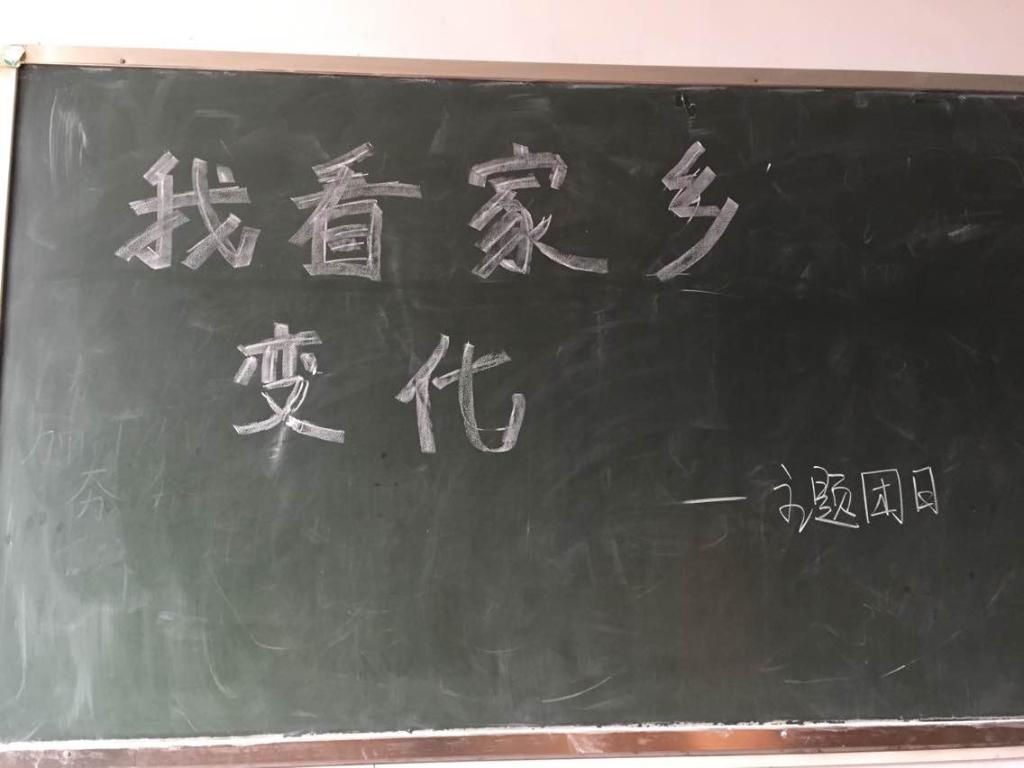 我看家乡
变化
—主题团日